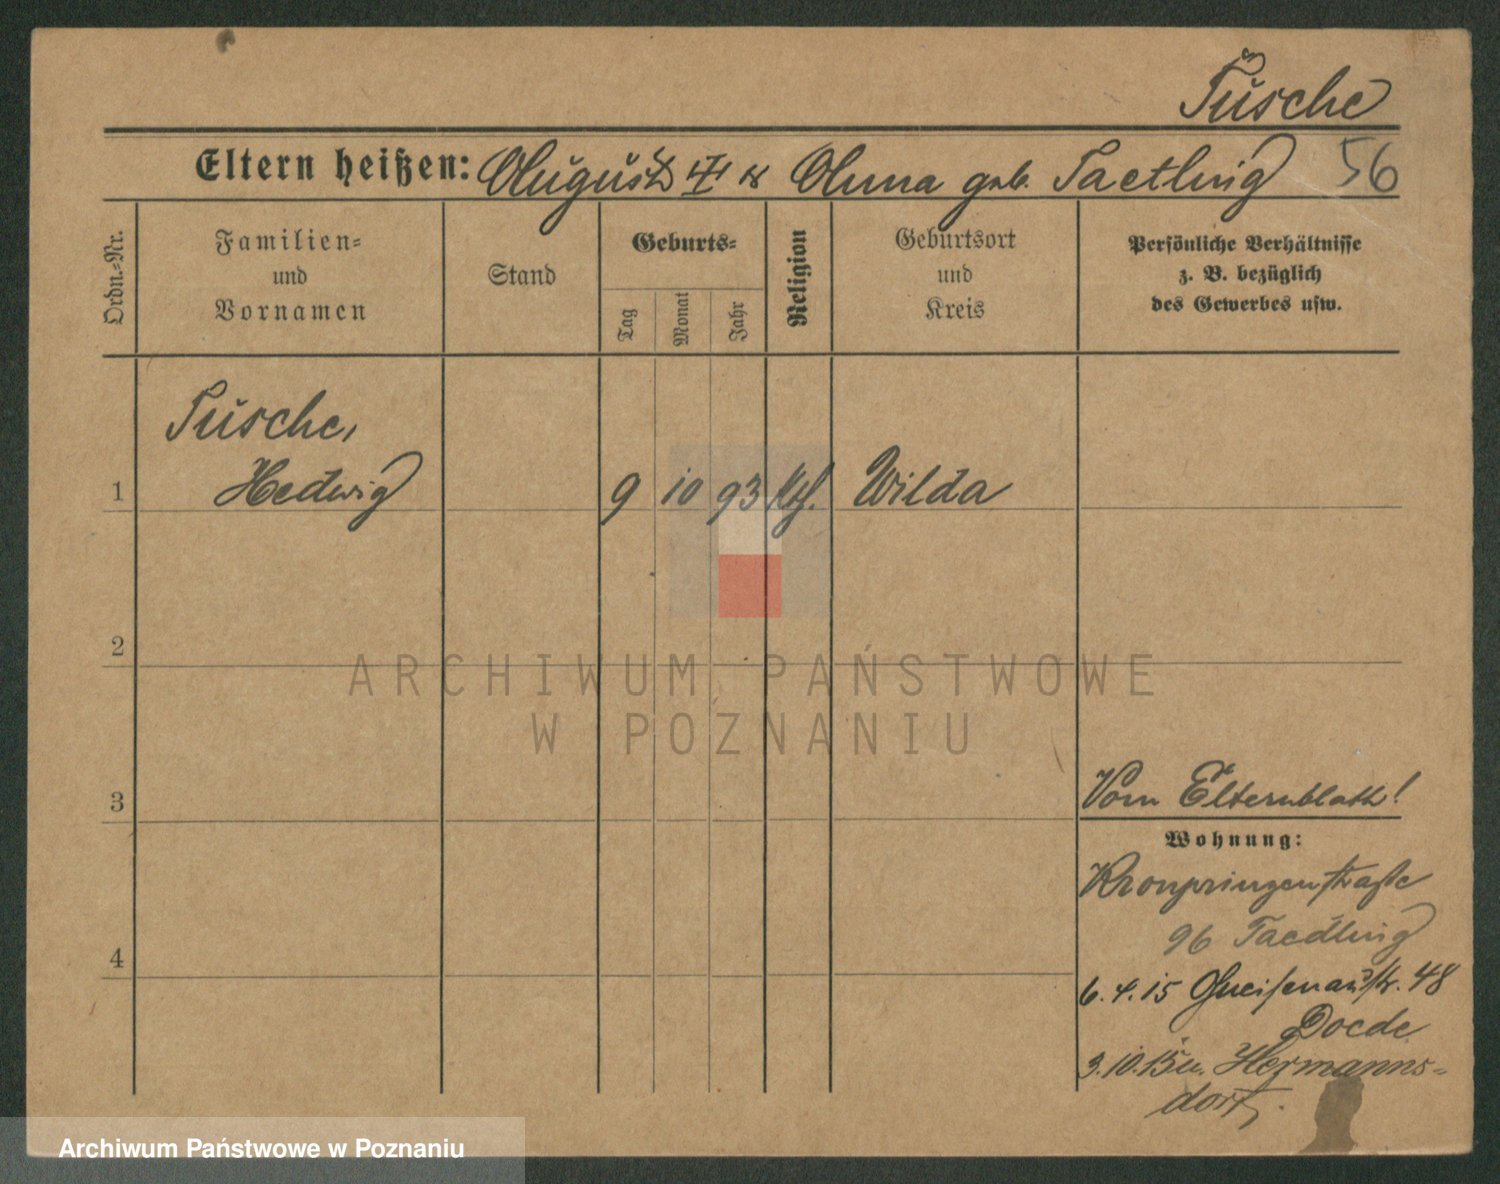 Tusche
Eltern heißen: August III u Anna geb. Taetling 56
Ordn.-Nr.
Familien-
und
Vornamen
Stand
Geburts-
Tag
Monat
Jahr
Religion
Geburtsort
und
Kreis
Persönliche Verhältnisse
z. B. bezüglich
des Gewerbes usw.
Tusche,
1 Hedwig 9 10 93 Wilda
2
3
4
Vom Elternblatt!
Wohnung:
Kronprinzenstraße
96 Taedling
6.4.15 Gneisenaustr. 48
Doede
3.10.15 u. Hermanns-
dorf.
ARCHIWUM PAŃSTWOWE
W POZNANIU
Archiwum Państwowe w Poznaniu